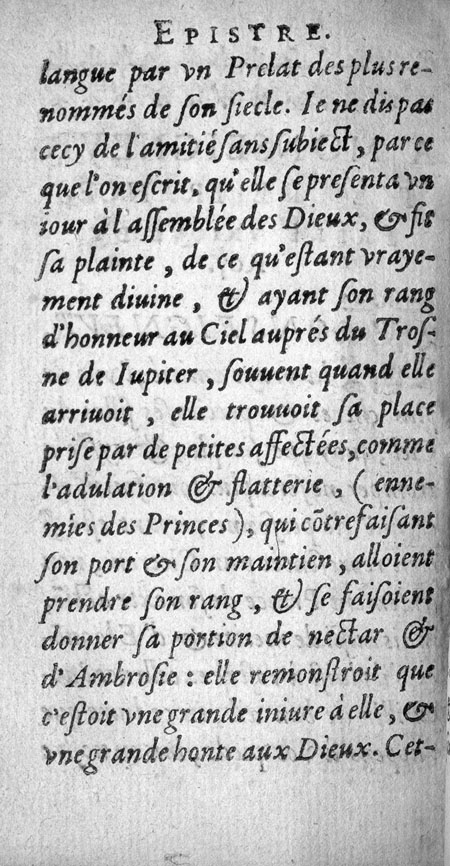 EPISTRE.
langue par vn Prelat des plus re-
nommés de ſon ſiecle. Ie ne dis pas
cecy de l'amitié sans subiect, par ce
que l'on eſcrit, qu'elle ſe preſenta vn
iour à l'aſſemblée des Dieux, & fit
ſa plainte, de ce qu'eſtant vraye-
ment diuine, & ayant ſon rang
d'honneur au Ciel auprés du Troſ-
ne de Iupiter, ſouuent quand elle
arriuoit, elle trouuoit ſa place
priſe par de petites affectées, comme
l'adulation & flatterie, (enne-
mies des Princes), qui cõtrefaiſant
ſon port & ſon maintien, alloient
prendre ſon rang, & ſe faiſoient
donner ſa portion de nectar &
d'Ambroſie : elle remonſtroit que
c'eſtoit vne grande iniure à elle, &
vne grande honte aux Dieux. Cet-